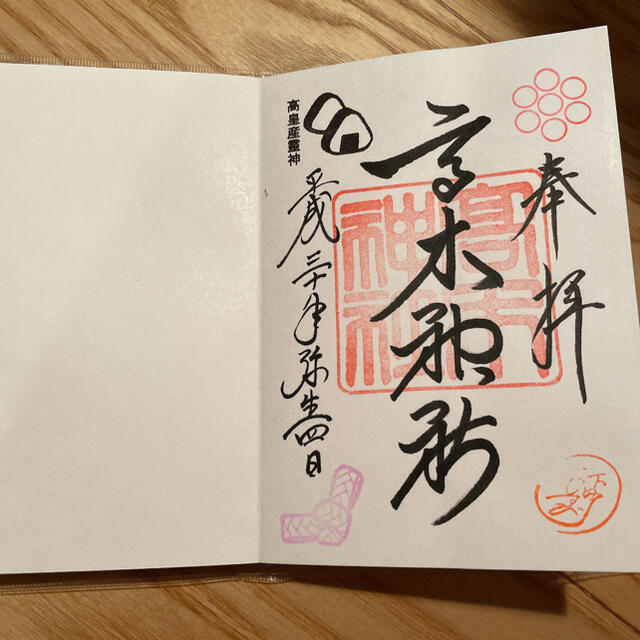 奉拝
高木神社
高木神社
平成三十年弥生四日
高皇産霊神